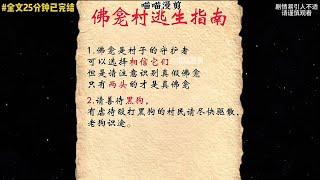 #全文25分钟已完结
喵喵漫剪
剧情易引人不适
请谨慎观看
佛龛村逃生指南
1.佛龛是村子的守护者
可以选择相信它们
但是请注意识别真假佛龛
只有两头的才是真佛龛
2.请善待黑狗，
有虐待殴打黑狗的村民请尽快驱散，
老狗识途。